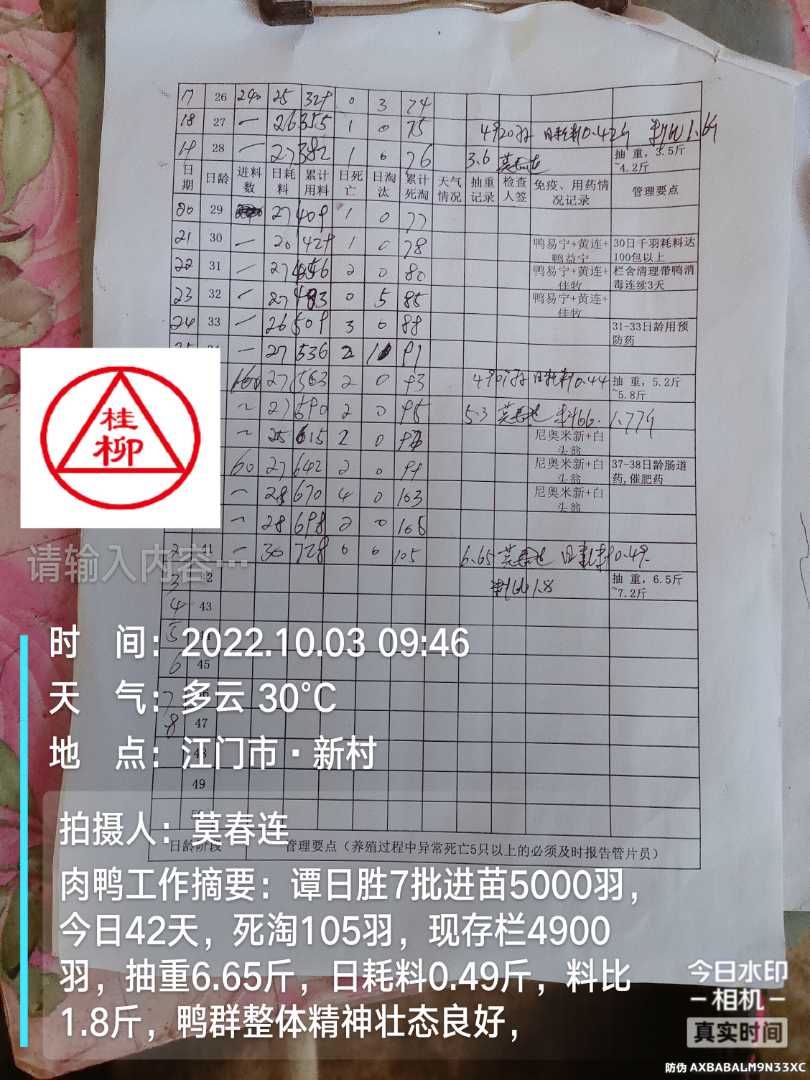 17 26 240 25 329 0 3 74
18 27 一 26 355 1 0 75 4920羽 日耗料0.42斤 料比1.6斤
19 28 一 27 382 1 0 76 3.6 莫春连 抽重,3.5斤~4.2斤
日期 日龄 进料数 日耗料 累计用料 日死亡 日淘汰 累计死淘 天气情况 抽重记录 检查人签 免疫、用药情况记录 管理要点
20 29 27 409 1 0 77
21 30 一 20 429 1 0 78 鸭易宁+黄连+鸭益宁 30日千羽耗料达100包以上
22 31 一 27 456 2 0 80 鸭易宁+黄连+佳牧 栏舍清理带鸭消毒连续3天
23 32 一 27 483 0 5 85 鸭易宁+黄连+佳牧
24 33 一 26 509 3 0 88 31-33日龄用预防药
一 27 536 2 1 91
160 27 563 2 0 93 4907羽 日耗料0.44 抽重,5.2斤~5.8斤
~ 27 590 2 0 95 5.3 莫春连 料比 1.77斤
~ 25 615 2 0 97 尼奥米新+白头翁
60 27 642 2 0 99 尼奥米新+白头翁 37-38日龄肠道药,催肥药
一 28 670 4 0 103 尼奥米新+白头翁
~ 28 698 2 0 105
2 41 一 30 728 0 0 105 6.65 莫春连 日耗料0.49
3 42 料比1.8 抽重,6.5斤~7.2斤
4 43
5
6 45
7 46
8 47
48
49
日龄阶段 管理要点(养殖过程中异常死亡5只以上的必须及时报告管片员)
桂
柳
请输入内容…
时 间:2022.10.03 09:46
天 气:多云 30°C
地 点:江门市·新村
拍摄人:莫春连
肉鸭工作摘要:谭日胜7批进苗5000羽,
今日42天,死淘105羽,现存栏4900
羽,抽重6.65斤,日耗料0.49斤,料比
1.8斤,鸭群整体精神壮态良好,
今日水印
-相机-
真实时间
防伪 AXBABALM9N33XC